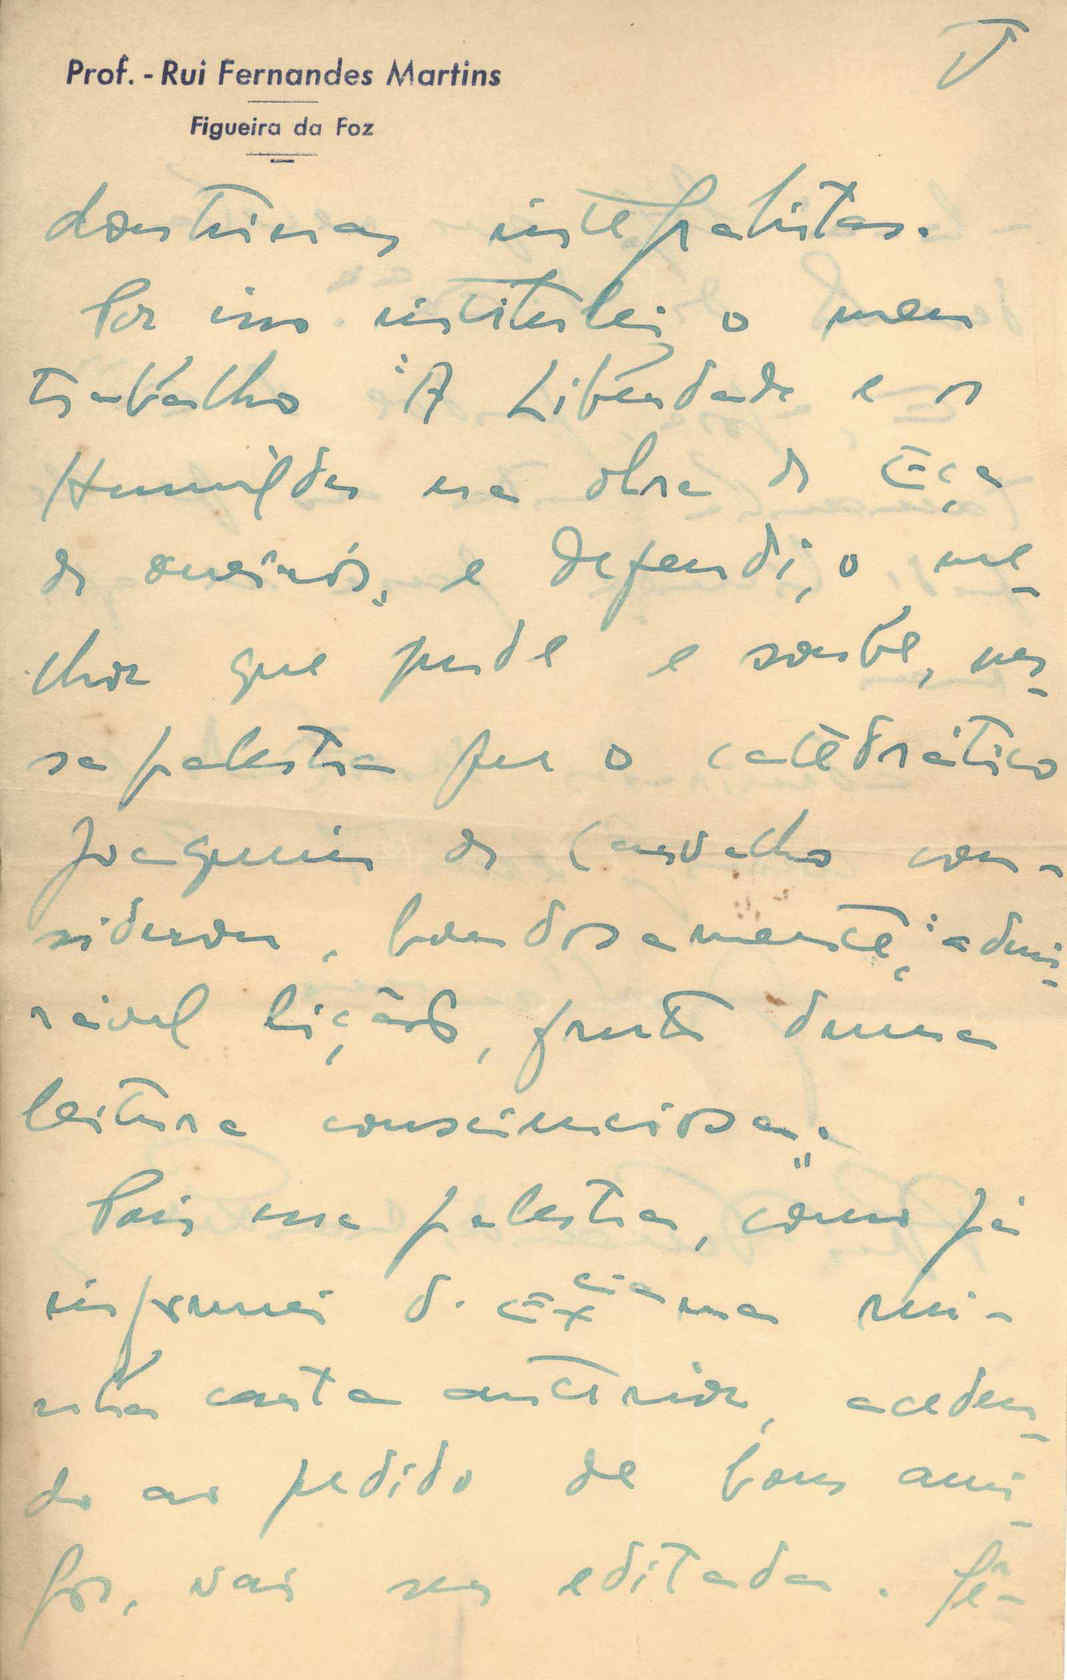 Prof. - Rui Fernandes Martins
Figueira da Foz
V
doutrinas integralistas.
Por isso intitulei o meu
trabalho "A Liberdade e os
Humildes na obra de Eça
de Queirós" e defendi, o me-
lhor que pude e soube, nes-
sa palestra que o catedrático
Joaquim de Carvalho con-
siderou, bondosamente, "admi-
rável lição, fruto duma
leitura conscienciosa".
Pois essa palestra, como já
informei V. Excia na mi-
nha carta anterior, aceden-
do ao pedido de bons ami-
gos, vai ser editada.